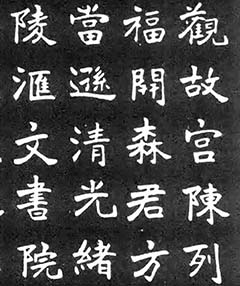 觀故宮陳列
福開森君方
當遜清光緒
陵滙文書院